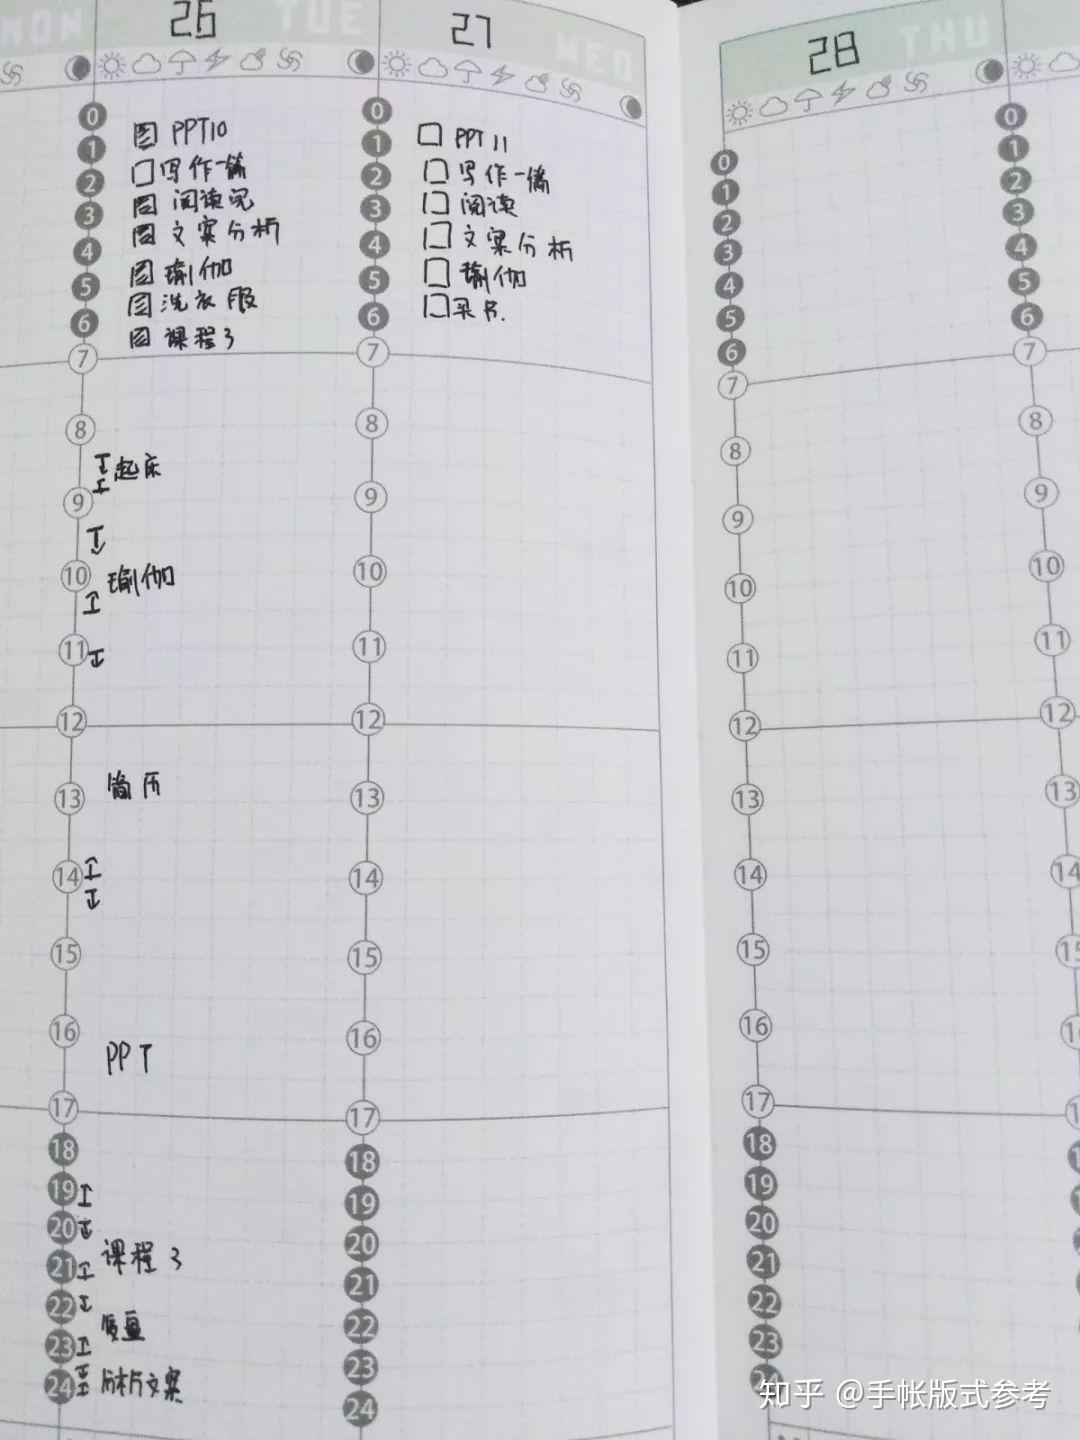 MON
26 TUE
27 WED
28 THU
0
1
2
3
4
5
6
7
8
9
10
11
12
13
14
15
16
17
18
19
20
21
22
23
24
PPT10
写作一篇
阅读完
文案分析
瑜伽
洗衣服
课程3
起床
瑜伽
简历
PPT
课程 3
复盘
文案
0
1
2
3
4
5
6
7
8
9
10
11
12
13
14
15
16
17
18
19
20
21
22
23
24
PPT 11
写作一篇
阅读
文案分析
瑜伽
买书.
0
1
2
3
4
5
6
7
8
9
10
11
12
13
14
15
16
17
18
19
20
21
22
23
24
0
1
2
3
4
5
6
7
8
9
10
11
12
13
14
15
知乎 @手帐版式参考